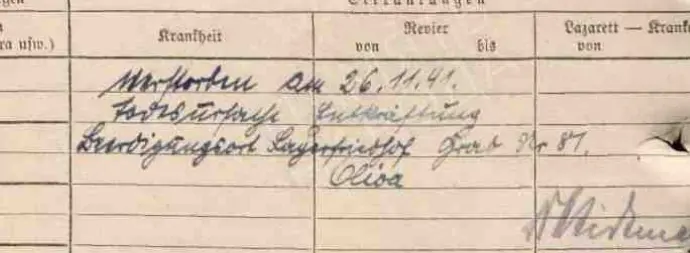 Erkrankungen
Krankheit
Revier
Lazarett — Kranke
ra usw.)
von
bis
von
Verstorben am 26.11.41.
Todesursache Entkräftung
Beerdigungsort Lagerfriedhof Grab Nr 87.
Oliva